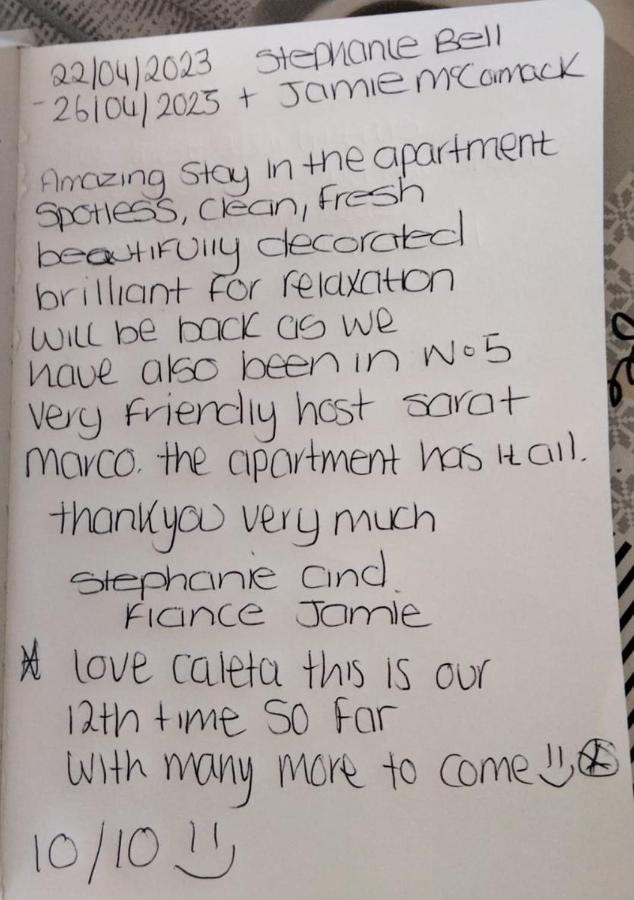 22/04/2023 Stephanie Bell
- 26/04/2023 + Jamie McCormack
Amazing Stay in the apartment
Spotless, clean, fresh
beautifully decorated
brilliant for relaxation
will be back as we
have also been in No5
very friendly host sarat
marco. the apartment has it all.
thankyou very much
Stephanie and
Fiance Jamie
love caleta this is our
12th time so far
with many more to come
10/10